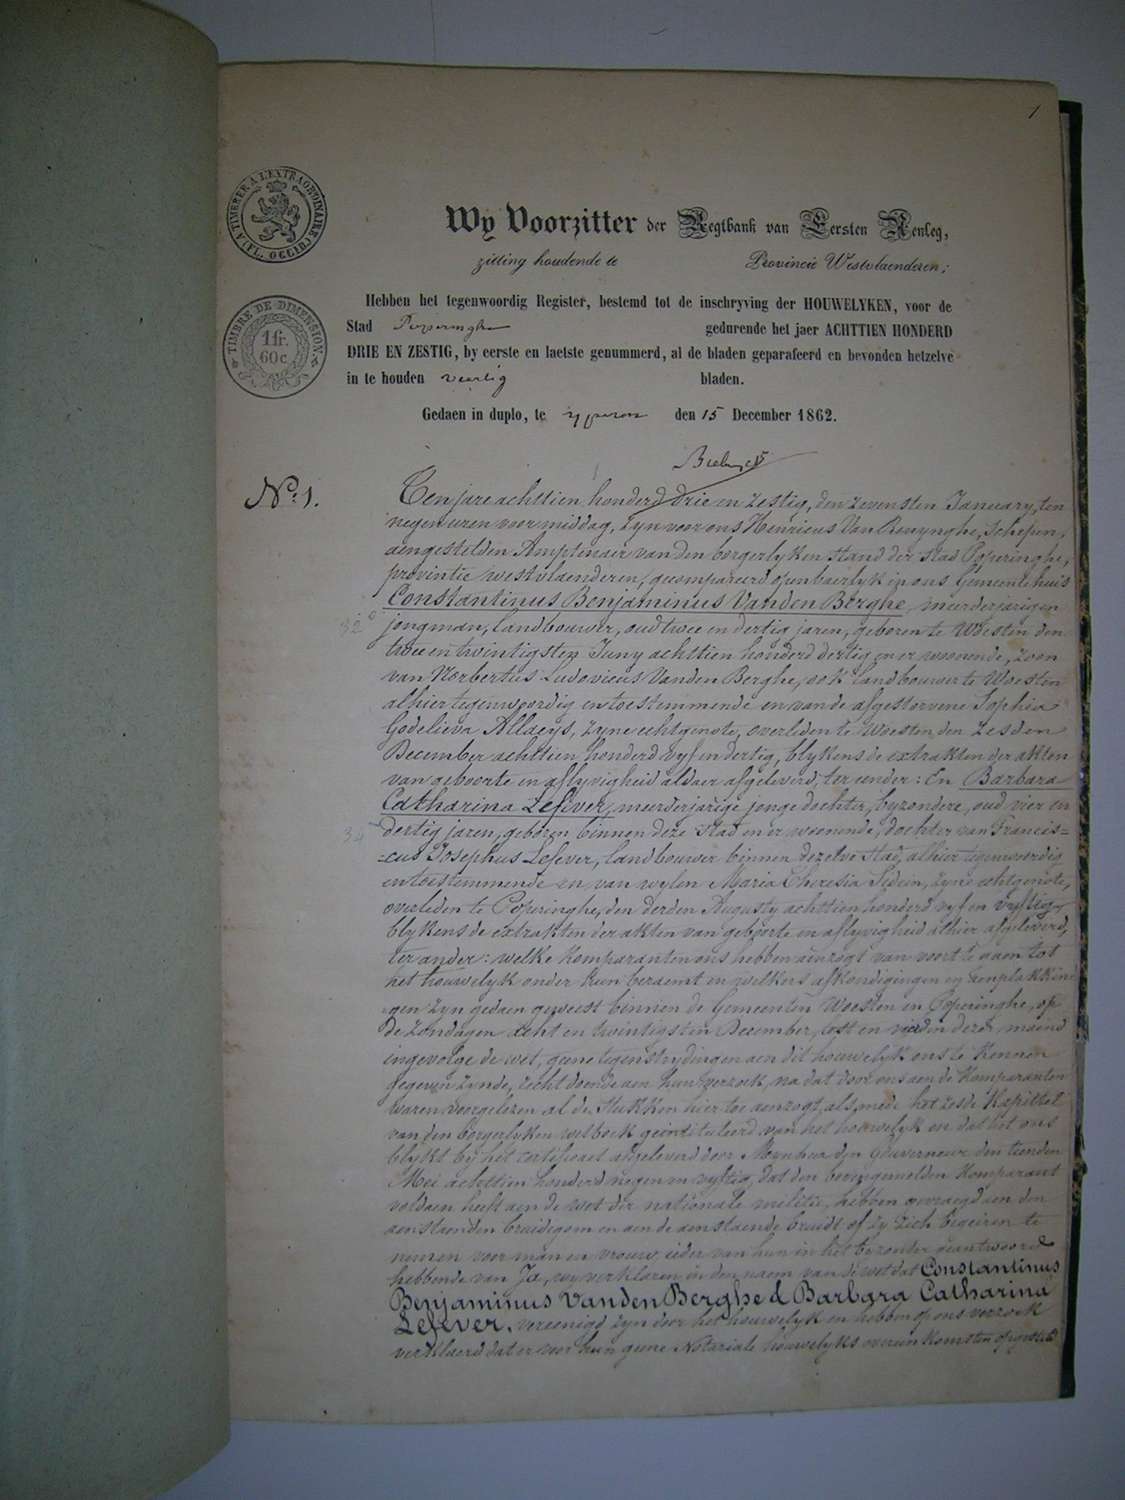 1
TIMBRE A L'EXTRAORDINAIRE
(FL. OCCID.)
Wy Voorzitter der Regtbank van Eersten Aenleg,
zitting houdende te Provincie Westvlaenderen;
TIMBRE DE DIMENSION
1 fr.
60 c.
Hebben het tegenwoordig Register, bestemd tot de inschryving der HOUWELYKEN, voor de
Stad Poperinghe gedurende het jaer ACHTTIEN HONDERD
DRIE EN ZESTIG, by eerste en laetste genummerd, al de bladen geparafeerd en bevonden hetzelve
in te houden veertig bladen.
Gedaen in duplo, te Yperen den 15 December 1862.
No. 1.
Ten jare achttien honderd drie en zestig, den zevensten January, ten
negen uren voormiddag, zyn voor ons Henricus Van Renynghe, Schepen,
aengestelden Amptenaer van den borgerlyken stand der stad Poperinghe,
provintie westvlaenderen, gecompareerd openbaerlyk in ons Gemeentehuis
Constantinus Benjaminus Vanden Berghe, meerderjarigen
32
jongman, landbouwer, oud twee en dertig jaren, geboren te Woesten den
twee en twintigsten Juny achttien honderd dertig en er woonende, zoon
van Norbertus Ludovicus Vanden Berghe, ook landbouwer te Woesten
alhier tegenwoordig en toestemmende en van de afgestorvene Sophia
Godelieva Allaeys, zyne echtgenote, overleden te Woesten den zesden
December achttien honderd vyf en dertig, blykens de extrakten der akten
van geboorte en aflyvigheid aldaer afgeleverd, ter eender: En Barbara
Catharina Lefever, meerderjarige jonge dochter, byzondere, oud vier en
34
dertig jaren, geboren binnen deze stad en er woonende, dochter van Francis=
=cus Josephus Lefever, landbouwer binnen dezelve stad, alhier tegenwoordig
en toestemmende en van wylen Maria Theresia Sedein, zyne echtgenote,
overleden te Poperinghe, den derden Augusty achttien honderd vyf en vyftig
blykens de extrakten der akten van geboorte en aflyvigheid alhier afgeleverd,
ter ander: welke komparanten ons hebben aenzogt van voort te gaen tot
het houwelyk onder hun beraemt en welkers afkondigingen en aenplakkin
gen zyn gedaen geweest binnen de Gemeenten Woesten en Poperinghe, op
de zondagen acht en twintigsten December, lest en vierden dezer maend
ingevolge de wet, geene tegenstrydingen aen dit houwelyk ons te kennen
gegeven zynde, recht doende aen hun verzoek, na dat door ons aen de komparanten
waren voorgelezen al de stukken hier toe aenzogt, als mede het zesde Kapittel
van den borgerlyken wetboek geintituleerd van het houwelyk en dat het ons
blykt by het certificaet afgeleverd door Mynheer den Gouverneur den tienden
Mei achttien honderd negen en vyftig, dat den bovengemelden komparant
voldaen heeft aen de wet der nationale militie, hebben gevraegd aen den
aenstaenden bruidegom en aen de aenstaende bruidt of zy zich begeiren te
nemen voor man en vrouw, ieder van hun in het byzonder geantwoord
hebbende van Ja, wy verklaren in den naem van de wet dat Constantinus
Benjaminus Vanden Berghe & Barbara Catharina
Lefever, vereenigd zyn door het houwelyk en hebben op ons verzoek
verklaerd dat er voor hun geene Notariale houwelyks overeenkomsten opgesteld